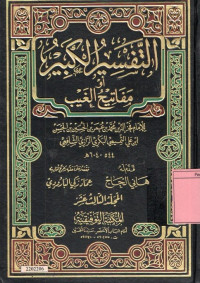 التفسير الكبير
أو
مفاتيح الغيب
للإمام فخر الدين محمد بن عمر بن الحسين بن الحسن
ابن علي التميمي البكري الرازي الشافعي
٥٤٤ - ٦٠٤ هـ
هاني الحاج
عماد زكي البارودي
المجلد الثالث عشر
المكتبة التوفيقية
2202206